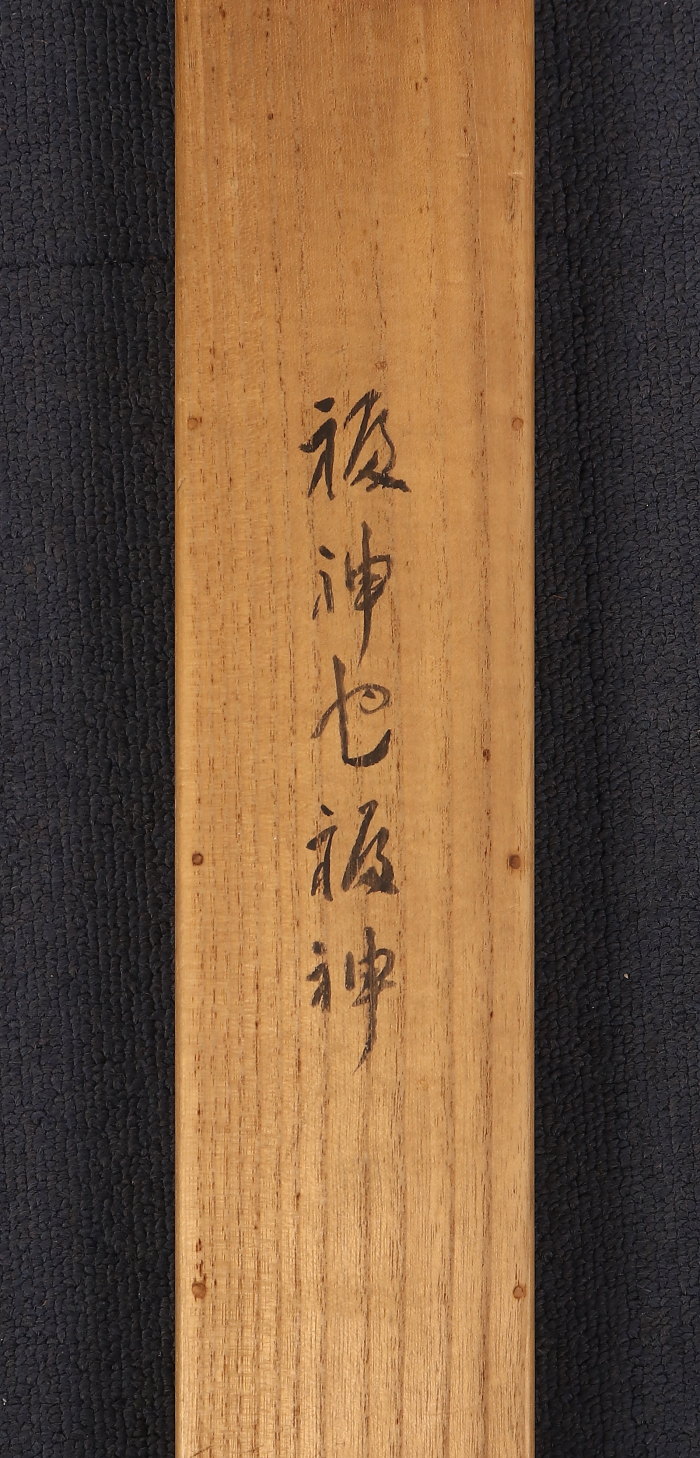 福神也福神